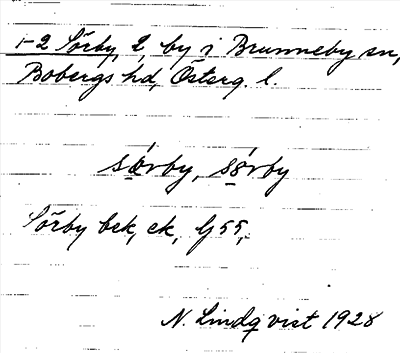 1-2 Sörby, 2, by i Brunneby sn,
Bobergs hd, Österg. l.
sö̀rby, sörby
Sörby bck, ek, G 55,
N. Lindqvist 1928